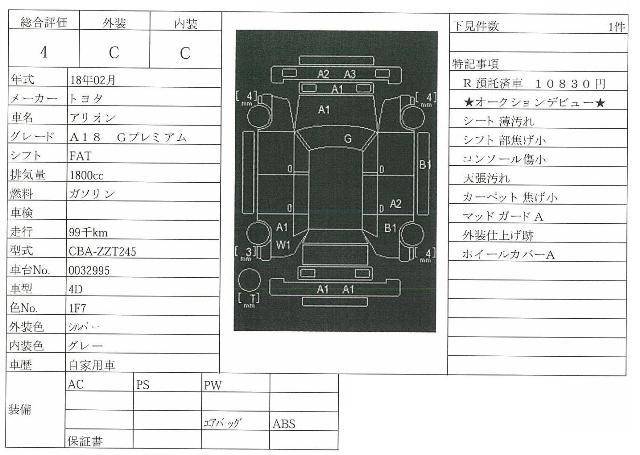 総合評価 外装 内装
4 C C
年式 18年02月
メーカー トヨタ
車名 アリオン
グレード A18 Gプレミアム
シフト FAT
排気量 1800cc
燃料 ガソリン
車検
走行 99千km
型式 CBA-ZZT245
車台No. 0032995
車型 4D
色No. 1F7
外装色 シルバー
内装色 グレー
車歴 自家用車
装備
AC PS PW
エアバッグ ABS
保証書
A2 A3
A1
[4] mm [4] mm
A1
G
B1
A2
A1 B1
W1
[3] mm [4] mm
A1 A1
[T] mm
下見件数 1件
特記事項
R預託済車 10830円
★オークションデビュー★
シート 薄汚れ
シフト 部焦げ小
コンソール 傷小
天張汚れ
カーペット 焦げ小
マッド ガードA
外装仕上げ跡
ホイールカバーA